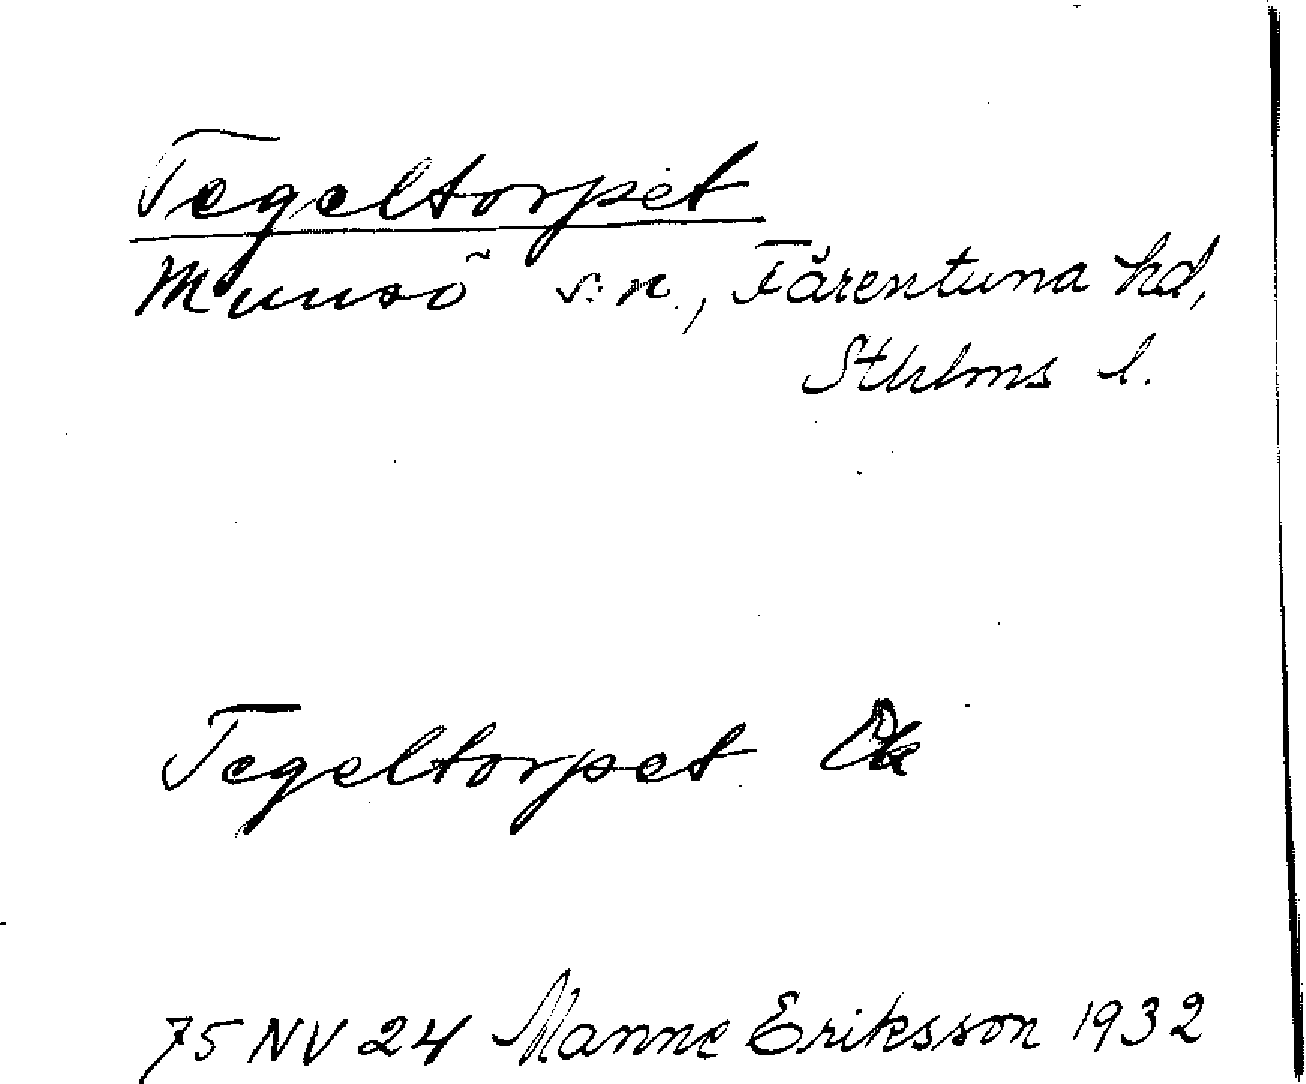 Tegeltorpet
Munsö sn., Färentuna hd,
Sthlms l.
Tegeltorpet Ek
75 NV 24 Manne Eriksson 1932